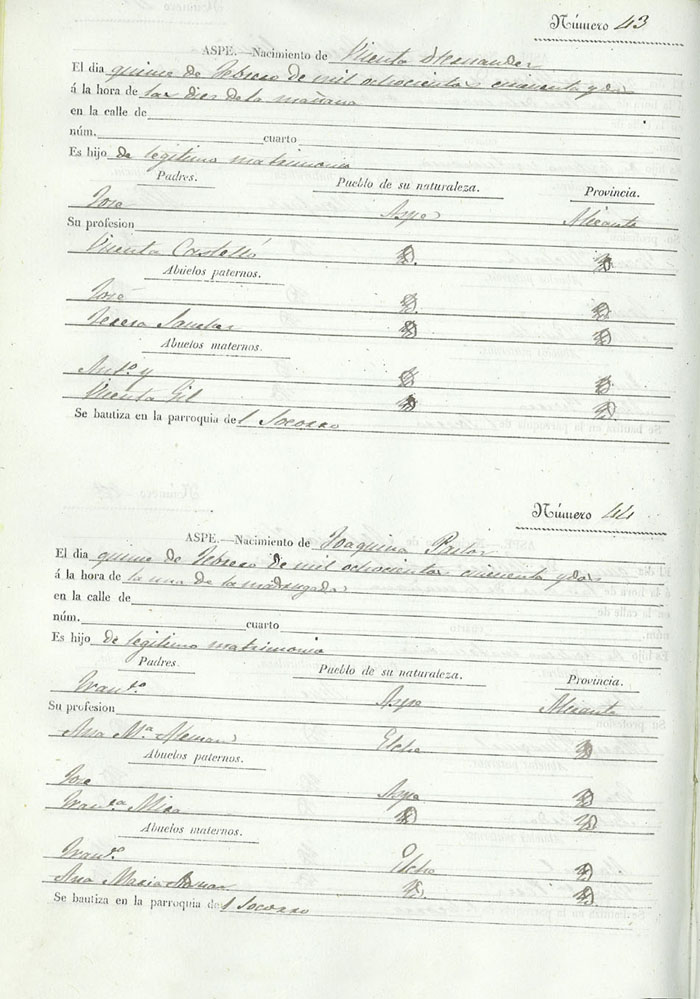 Número 43
ASPE.—Nacimiento de Vicenta Hernandez
El dia quince de Febrero de mil ochocientos cincuenta y dos
á la hora de las dies de la mañana
en la calle de
núm. cuarto
Es hijo de legitimo matrimonio
Padres. Pueblo de su naturaleza. Provincia.
Jose Aspe Alicante
Su profesion
Vicenta Castelló
Abuelos paternos.
Jose
Teresa Sanchez
Abuelos maternos.
Antº y
Vicenta Gil
Se bautiza en la parroquia del Socorro
Número 44
ASPE.—Nacimiento de Joaquina Pastor
El dia quince de Febrero de mil ochocientos cincuenta y dos
á la hora de la una de la madrugada
en la calle de
núm. cuarto
Es hijo de legitimo matrimonio
Padres. Pueblo de su naturaleza. Provincia.
Franº Aspe Alicante
Su profesion
Ana Mª Aleman Elche
Abuelos paternos.
Jose Aspe
Franca Mira
Abuelos maternos.
Franº Elche
Ana Maria
Se bautiza en la parroquia del Socorro